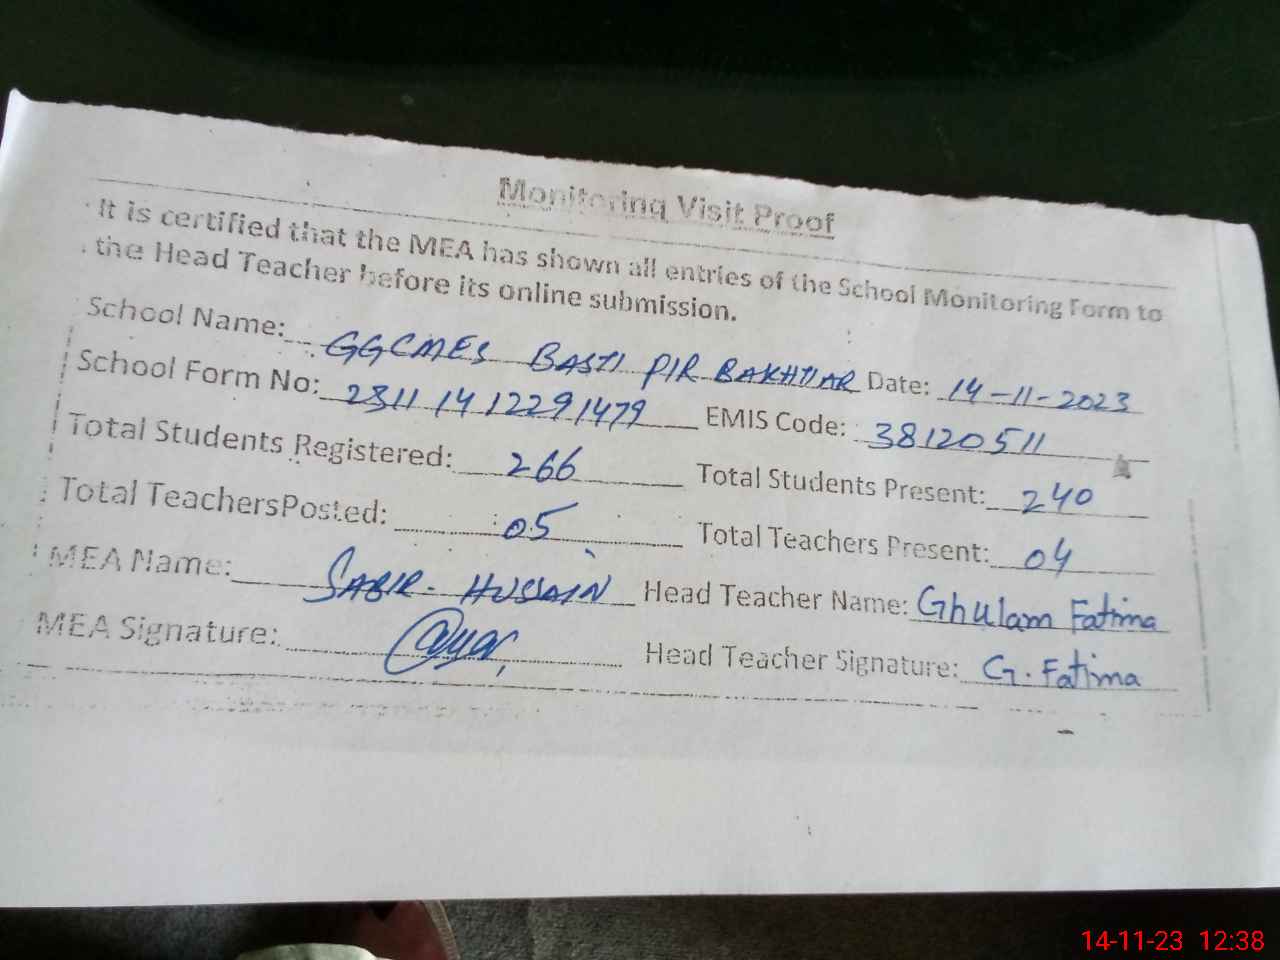 Monitoring Visit Proof
It is certified that the MEA has shown all entries of the School Monitoring Form to
the Head Teacher before its online submission.
School Name: GGCMES BASTI PIR BAKHTIAR Date: 14-11-2023
School Form No: 2311 14 12291479 EMIS Code: 38120511
Total Students Registered: 266 Total Students Present: 240
Total TeachersPosted: 05 Total Teachers Present: 04
MEA Name: SABIR-HUSSAIN Head Teacher Name: Ghulam Fatima
MEA Signature: Head Teacher Signature: G. Fatima
14-11-23 12:38